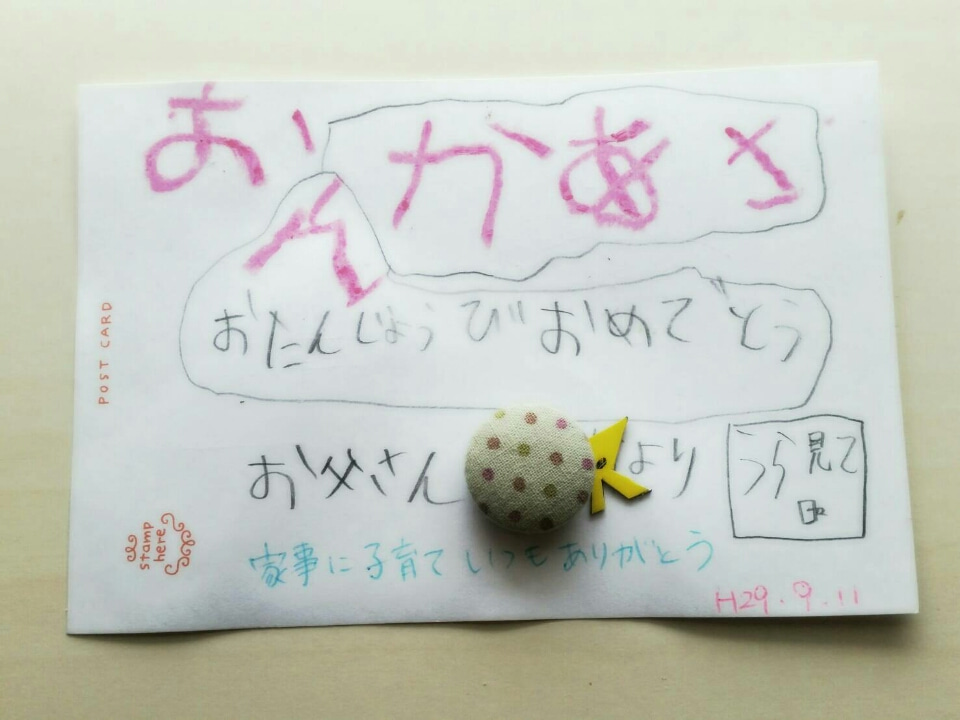 おかあさ
ん
おたんじょうびおめでとう
お父さん
より
うら見て
家事に子育ていつもありがとう
H29.9.11
POST CARD
stamp
here